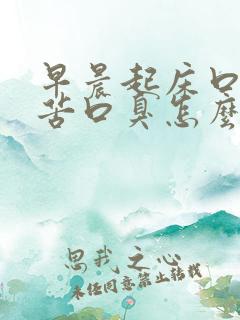 早晨起床口
苦口臭怎麼
思我之心
未经同意禁止转载